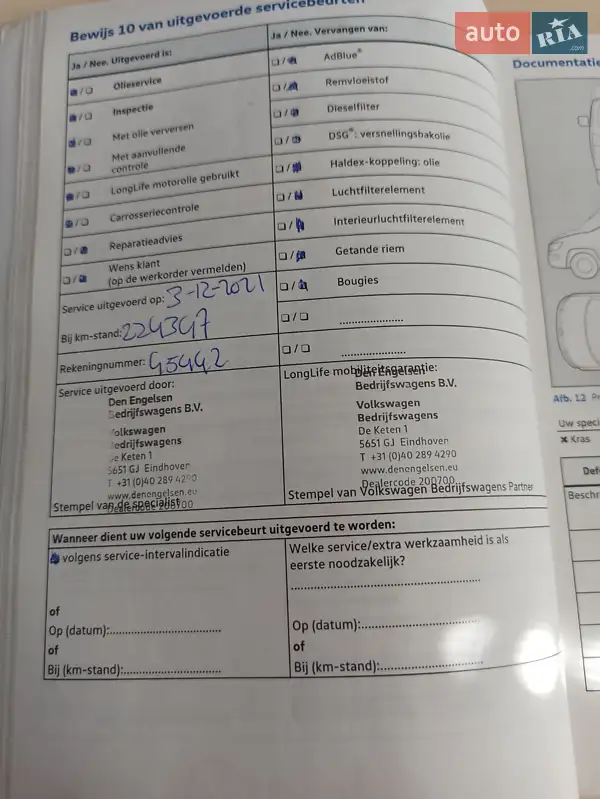 auto RIA .com
Bewijs 10 van uitgevoerde servicebeurten
Documentatie
Ja / Nee. Uitgevoerd is:
Ja / Nee. Vervangen van:
Olieservice
Inspectie
Met olie verversen
Met aanvullende
controle
LongLife motorolie gebruikt
Carrosseriecontrole
Reparatieadvies
Wens klant
(op de werkorder vermelden)
AdBlue®
Remvloeistof
Dieselfilter
DSG®: versnellingsbakolie
Haldex-koppeling: olie
Luchtfilterelement
Interieurluchtfilterelement
Getande riem
Bougies
Service uitgevoerd op: 3-12-2021
Bij km-stand: 224347
Rekeningnummer: 45442
Service uitgevoerd door:
Den Engelsen
Bedrijfswagens B.V.
Volkswagen
Bedrijfswagens
De Keten 1
5651 GJ Eindhoven
T +31 (0)40 289 4290
www.denengelsen.eu
Dealercode 200700
Stempel van de specialist
LongLife mobiliteitsgarantie:
Den Engelsen
Bedrijfswagens B.V.
Volkswagen
Bedrijfswagens
De Keten 1
5651 GJ Eindhoven
T +31 (0)40 289 4290
www.denengelsen.eu
Dealercode 200700
Stempel van Volkswagen Bedrijfswagens Partner
Wanneer dient uw volgende servicebeurt uitgevoerd te worden:
volgens service-intervalindicatie
of
Op (datum):
of
Bij (km-stand):
Welke service/extra werkzaamheid is als
eerste noodzakelijk?
Op (datum):
of
Bij (km-stand):
Afb. 12
Uw speci
Kras
Def
Beschr